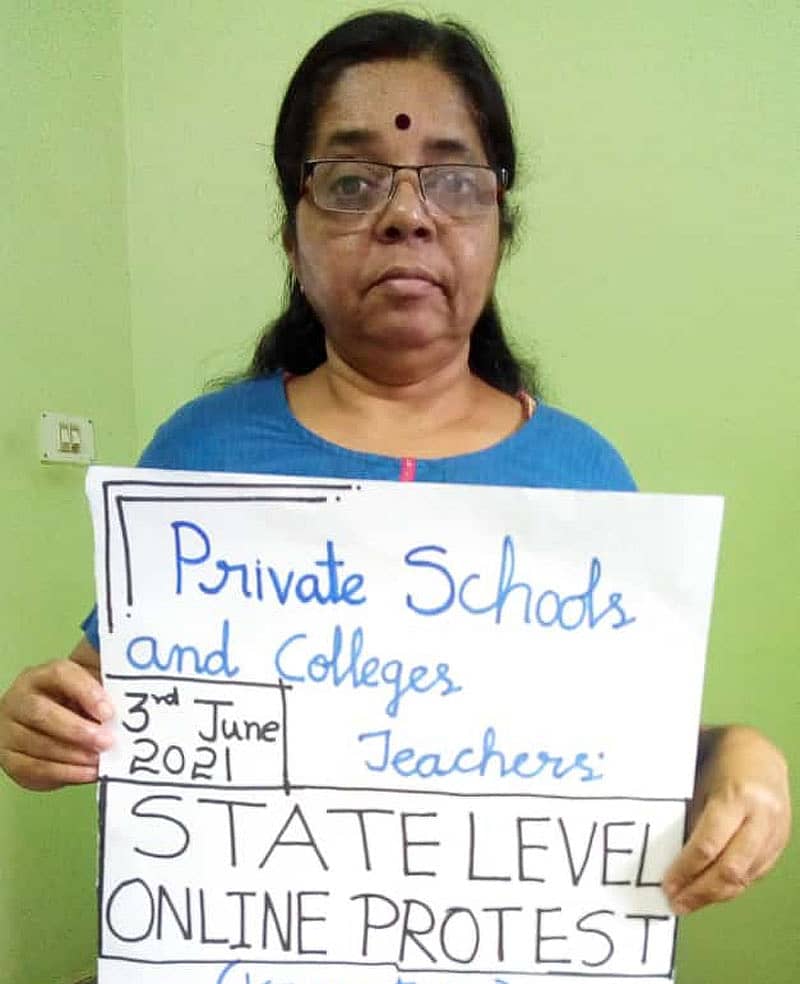 Private Schools
and Colleges
3rd June
2021
Teachers:
STATE LEVEL
ONLINE PROTEST